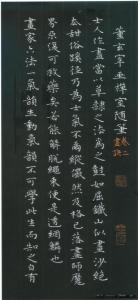 董玄宰畫禪室隨筆 卷二 畫訣
士人作畫當以草隸之法為之樹如屈鐵山似畫沙絕
去甜俗蹊徑乃為士氣不爾縱儼然及格已落畫師魔
界不復可救藥矣若能解脫繩束便是透網鱗也
畫家六法一氣韻生動氣韻不可學此生而知之自有